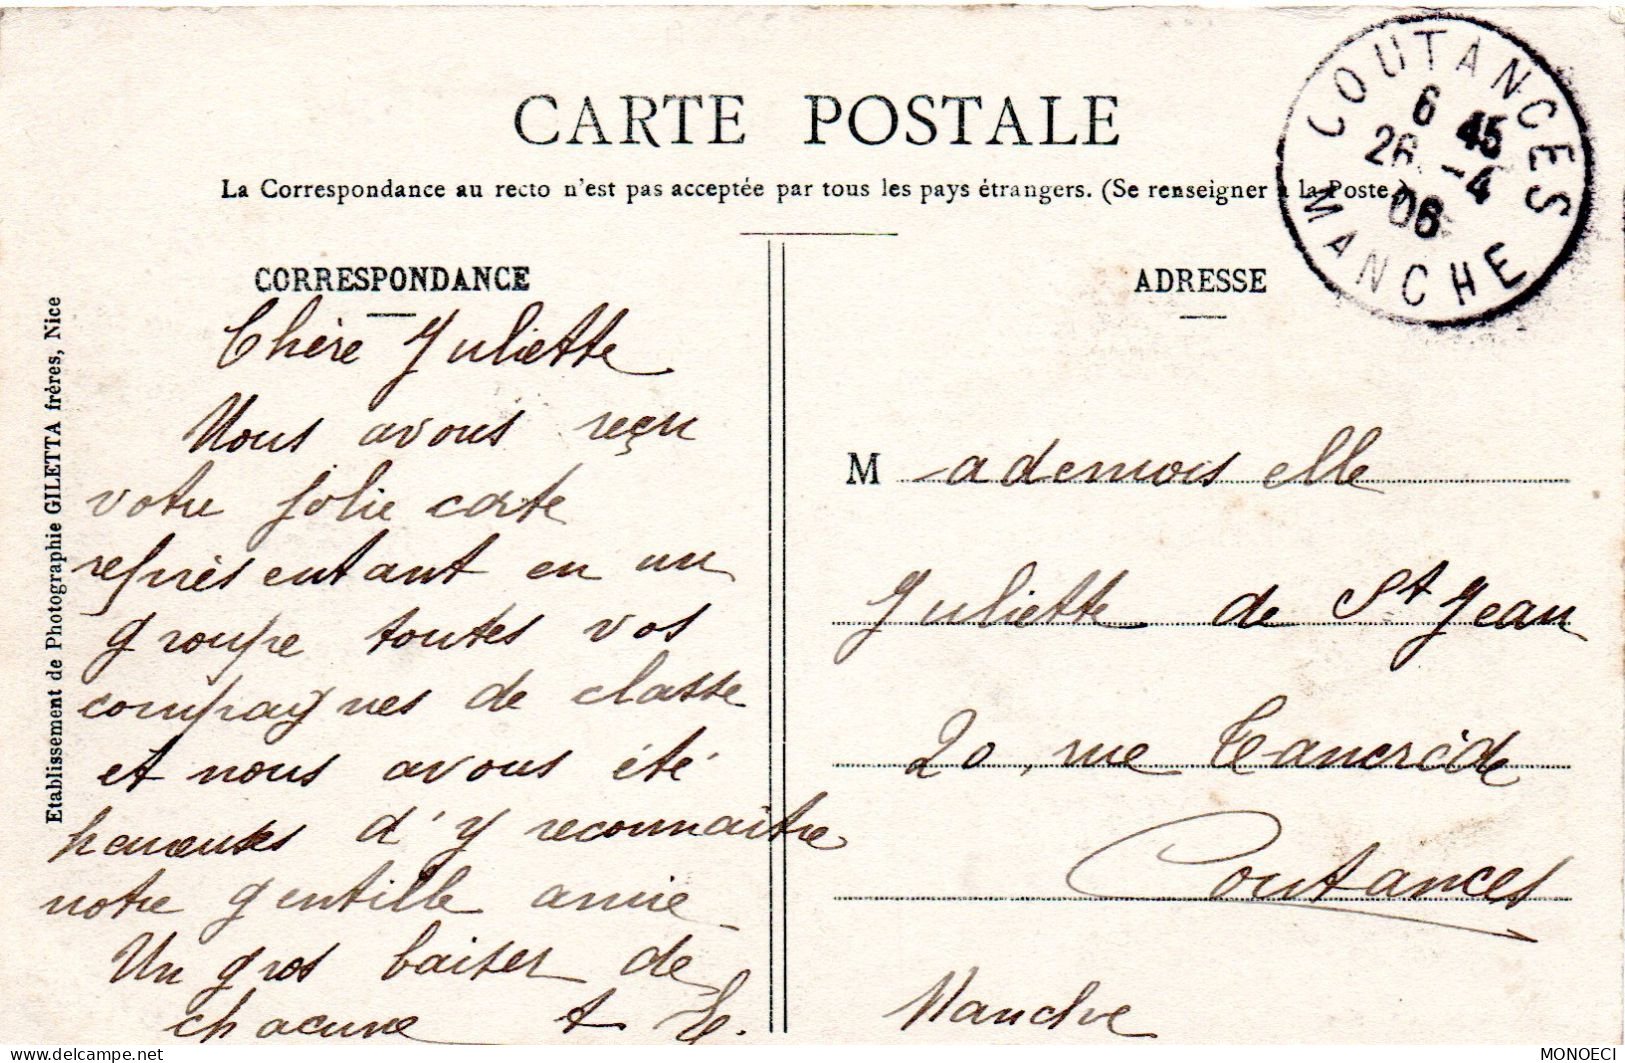 CARTE POSTALE
La Correspondance au recto n'est pas acceptée par tous les pays étrangers. (Se renseigner à la Poste.)
COUTANCES
6 45
26 -4
06
MANCHE
CORRESPONDANCE
Chère Juliette
Nous avons reçu
votre jolie carte
représentant en un
groupe toutes vos
compagnes de classe
et nous avons été
heureuses d'y reconnaître
notre gentille amie
Un gros baiser de
chacune
ADRESSE
Mademoiselle
Juliette de St Jean
20, rue Tancrède
Coutances
Manche
Etablissement de Photographie GILETTA frères, Nice
delcampe.net
MONOECI